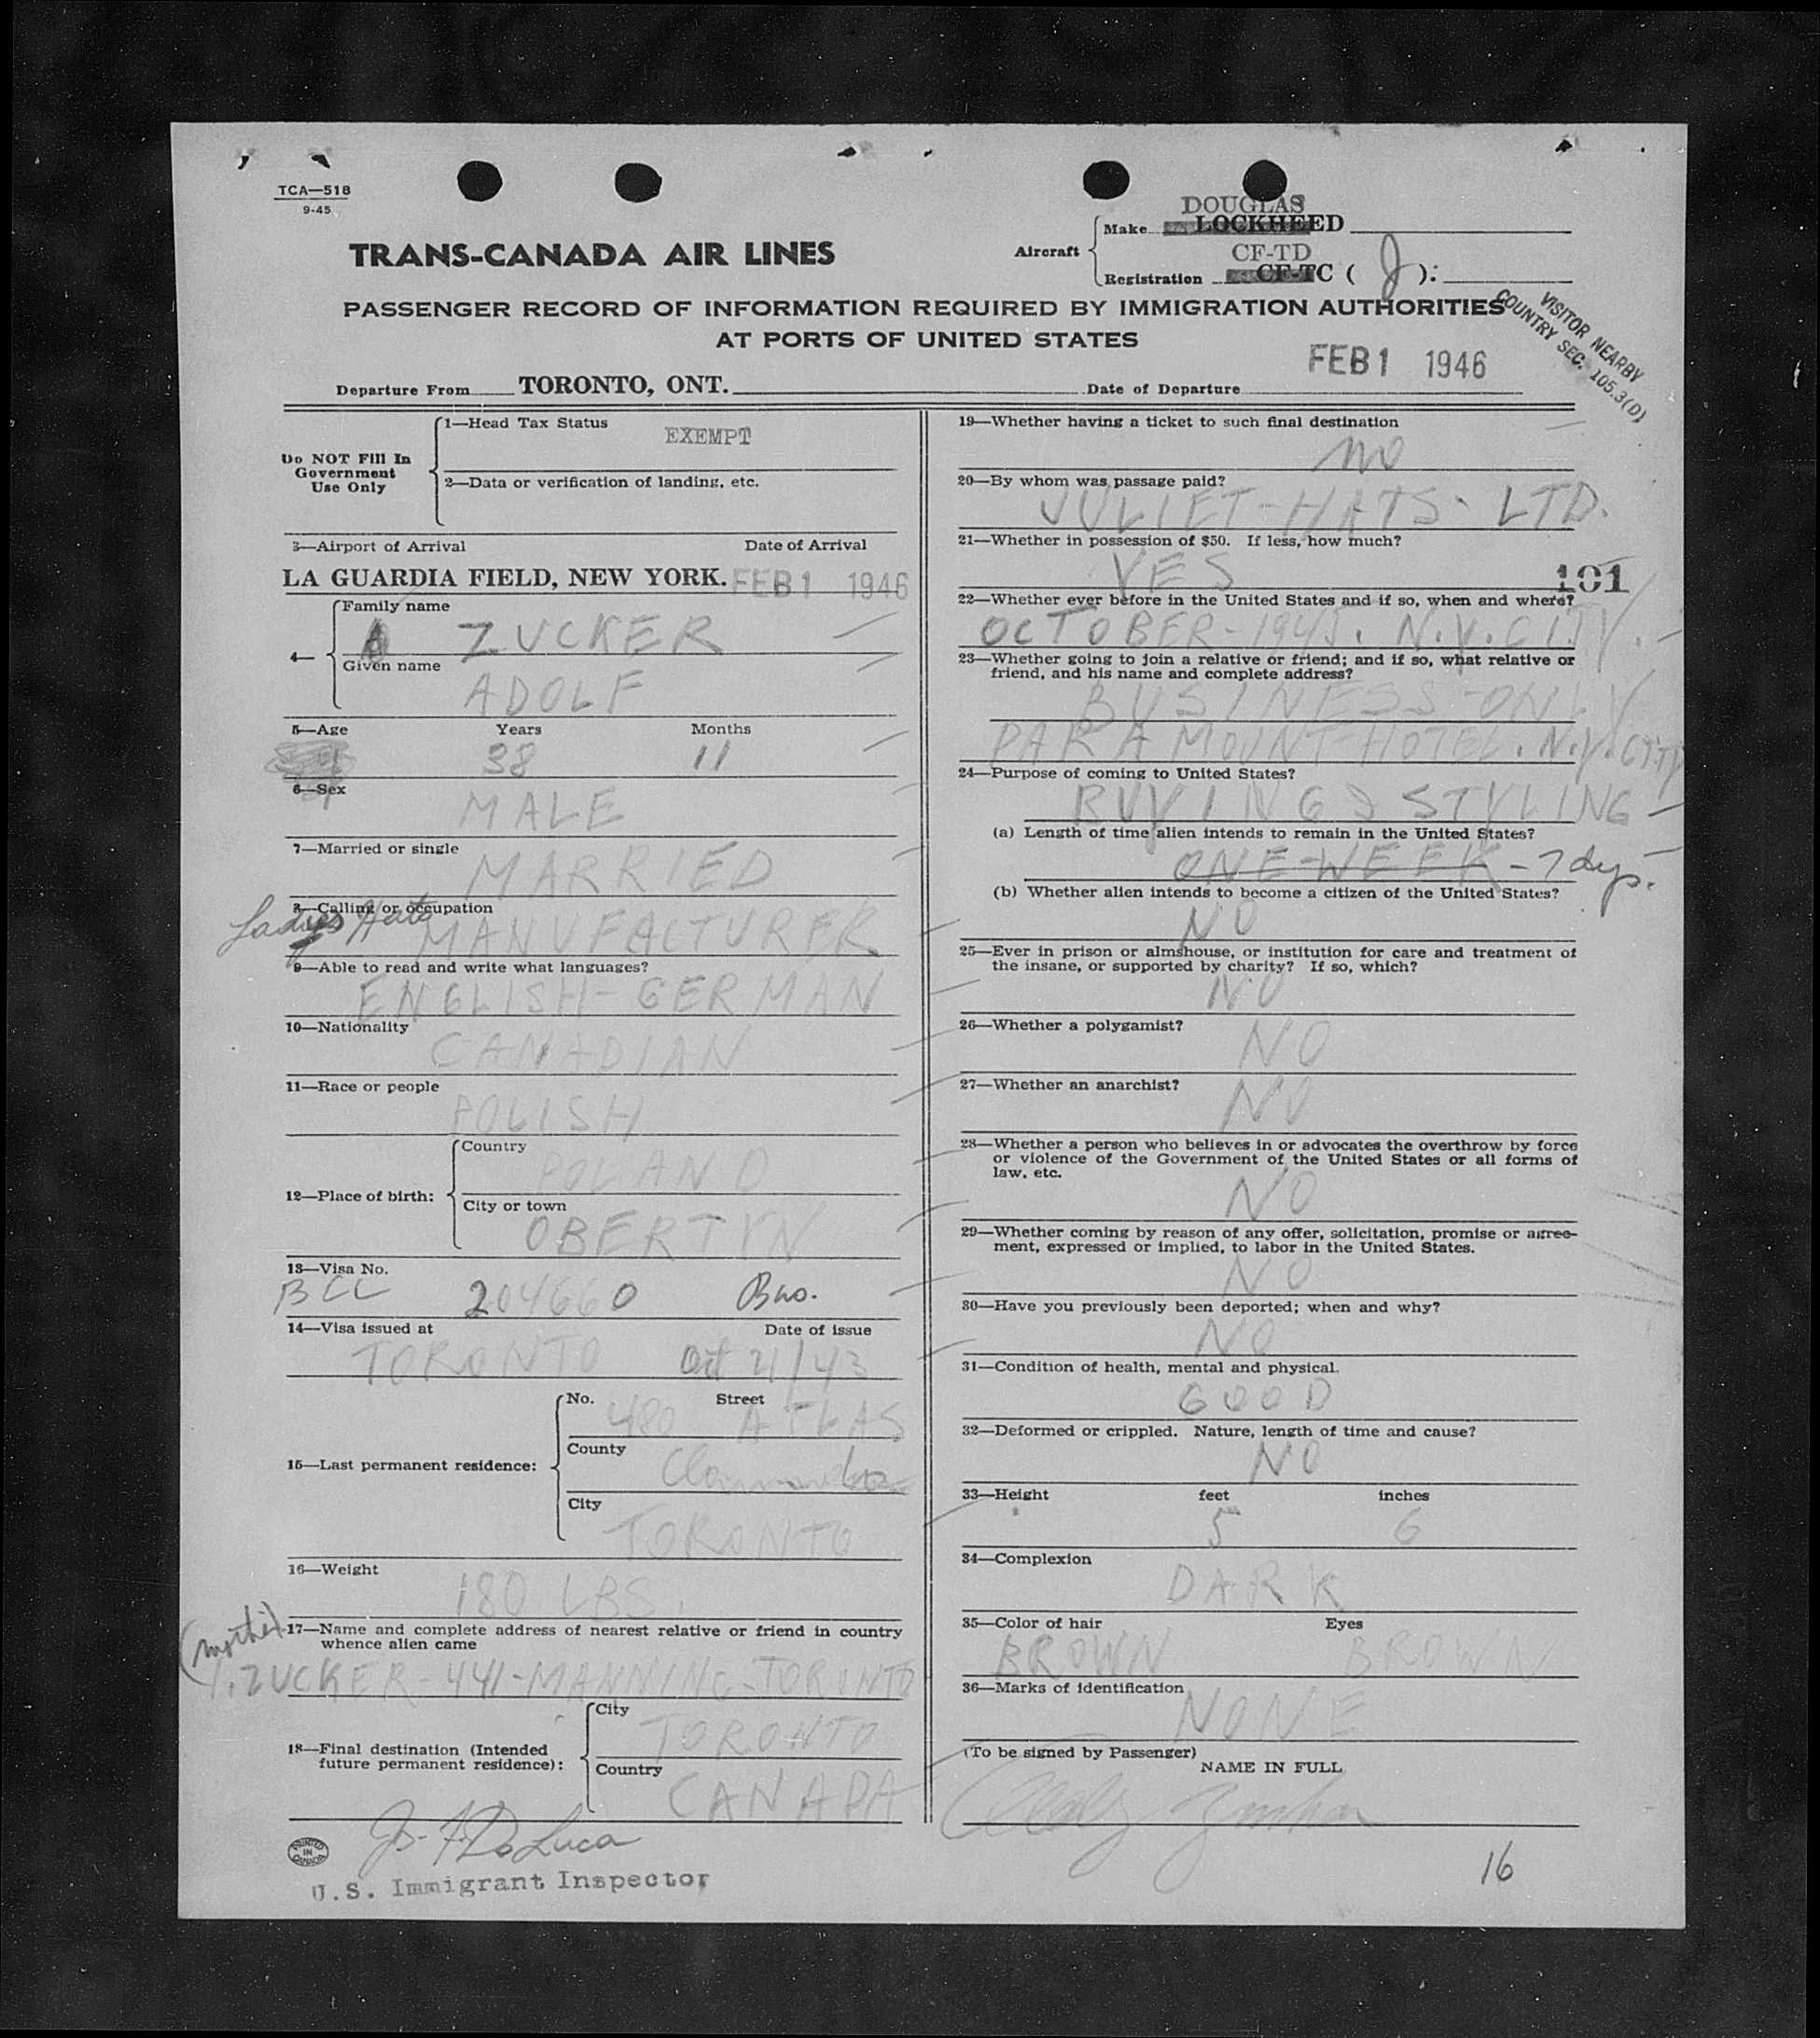 TCA—518
9-45
TRANS-CANADA AIR LINES
Aircraft
Make
DOUGLAS
LOCKHEED
CF-TD
Registration CF-TC ( J ):
PASSENGER RECORD OF INFORMATION REQUIRED BY IMMIGRATION AUTHORITIES
AT PORTS OF UNITED STATES
VISITOR NEARBY
COUNTRY SEC. 105.3(D)
Departure From TORONTO, ONT. Date of Departure FEB 1 1946
Do NOT Fill In
Government
Use Only
1—Head Tax Status
EXEMPT
2—Data or verification of landing, etc.
3—Airport of Arrival Date of Arrival
LA GUARDIA FIELD, NEW YORK. FEB 1 1946
4—
Family name
ZUCKER
Given name
ADOLF
5—Age Years Months
38 11
6—Sex
MALE
7—Married or single
MARRIED
8—Calling or occupation
Ladies Hats MANUFACTURER
9—Able to read and write what languages?
ENGLISH-GERMAN
10—Nationality
CANADIAN
11—Race or people
POLISH
12—Place of birth:
Country
POLAND
City or town
OBERTYN
13—Visa No.
BCC 204660
14—Visa issued at Date of issue
TORONTO Oct 21/43
15—Last permanent residence:
No. Street
480 ATLAS
County
City
TORONTO
16—Weight
180 LBS.
(mother)
17—Name and complete address of nearest relative or friend in country
whence alien came
ZUCKER-441-MANNING-TORONTO
18—Final destination (Intended
future permanent residence):
City
TORONTO
Country
CANADA
PRINTED
IN
CANADA
De Luca
U.S. Immigrant Inspector
19—Whether having a ticket to such final destination
no
20—By whom was passage paid?
JULIET-HATS-LTD.
21—Whether in possession of $50. If less, how much?
YES
101
22—Whether ever before in the United States and if so, when and where?
OCTOBER-1945. N.Y. CITY.
23—Whether going to join a relative or friend; and if so, what relative or
friend, and his name and complete address?
BUSINESS-ONLY
PARAMOUNT-HOTEL. N.Y. CITY
24—Purpose of coming to United States?
BUYING & STYLING
(a) Length of time alien intends to remain in the United States?
ONE-WEEK - 7 dys.
(b) Whether alien intends to become a citizen of the United States?
NO
25—Ever in prison or almshouse, or institution for care and treatment of
the insane, or supported by charity? If so, which?
NO
26—Whether a polygamist?
NO
27—Whether an anarchist?
NO
28—Whether a person who believes in or advocates the overthrow by force
or violence of the Government of the United States or all forms of
law, etc.
NO
29—Whether coming by reason of any offer, solicitation, promise or agree-
ment, expressed or implied, to labor in the United States.
NO
30—Have you previously been deported; when and why?
NO
31—Condition of health, mental and physical.
GOOD
32—Deformed or crippled. Nature, length of time and cause?
NO
33—Height feet inches
5 6
34—Complexion
DARK
35—Color of hair Eyes
BROWN BROWN
36—Marks of identification
NONE
(To be signed by Passenger)
NAME IN FULL
16